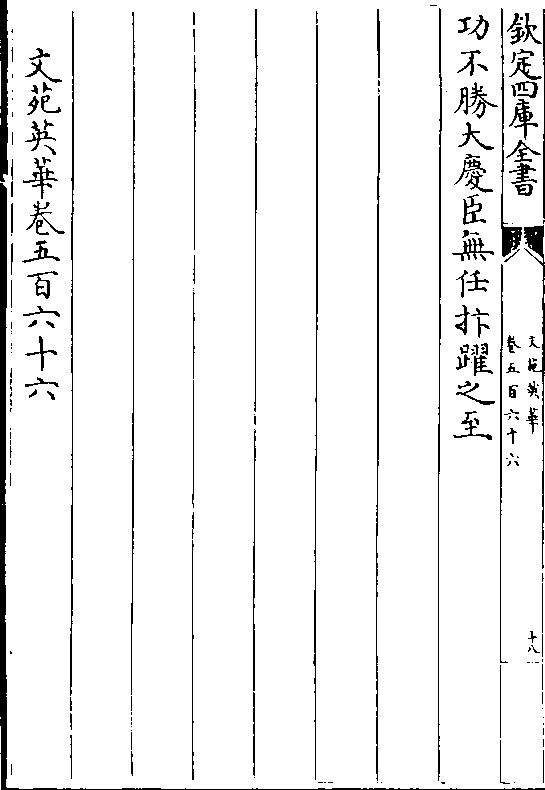 欽定四庫全書
文苑英華
卷五百六十六
十八
功不勝大慶臣無任抃躍之至
文苑英華卷五百六十六